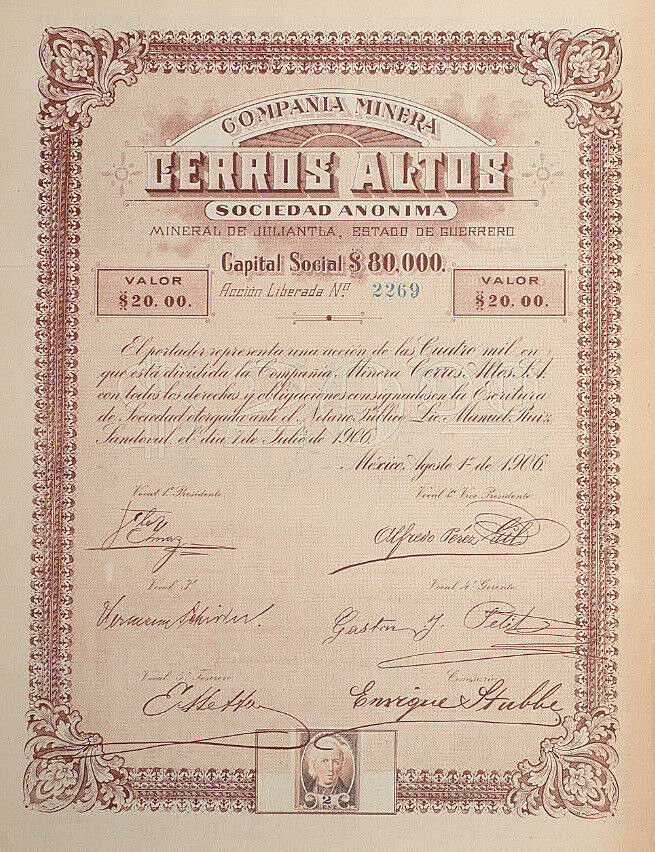 COMPAÑIA MINERA
CERROS ALTOS
SOCIEDAD ANONIMA
MINERAL DE JULIANTLA, ESTADO DE GUERRERO
Capital Social $ 80,000.
VALOR
$ 20.00.
Acción Liberada Nº 2269
VALOR
$ 20.00.
El portador representa una acción de las Cuatro mil en
que está dividida la Compañía Minera Cerros Altos S.A.
con todos los derechos y obligaciones consignados en la Escritura
de Sociedad otorgada ante el Notario Público Lic. Manuel Ruiz
Sandoval, el día 1 de Julio de 1906
México, Agosto 1º de 1906.
Vocal 1º Presidente
Vocal 2º Vice Presidente
Alfredo Pérez Gil
Vocal 3º
Vocal 4º Gerente
Gaston J. Petit
Vocal 5º Tesorero
Comisario
Enrique Stubbe
2
CENT